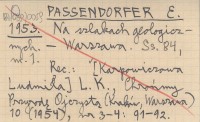 PASSENDORFER E.
1953. Na szlakach geologicz-
nych. - Warszawa. Ss. 84,
nl. 1.
Rec.: [Karpowiczowa
Ludmiła] L. K. Chrońmy
Przyrodę Ojczystą (Kraków, Warszawa)
10 (1954), no 3-4: 91-92.